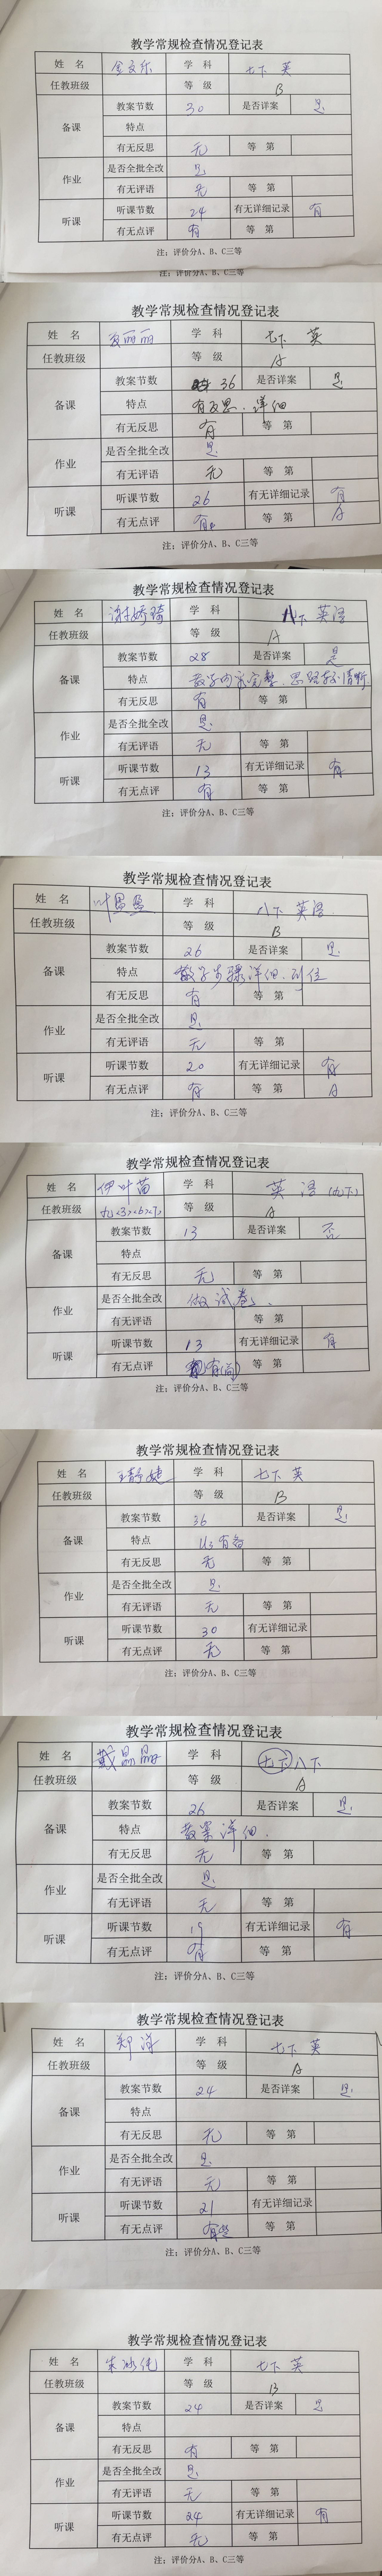 教学常规检查情况登记表
姓 名 金文乐 学 科 七下 英
任教班级 等 级 B
备课 教案节数 30 是否详案 是
特点
有无反思 无 等 第
作业 是否全批全改 是
有无评语 无 等 第
听课 听课节数 24 有无详细记录 有
有无点评 有 等 第
注：评价分A、B、C三等
注：评价分A、B、C三等
教学常规检查情况登记表
姓 名 夏丽丽 学 科 七下 英
任教班级 等 级 A
备课 教案节数 36 是否详案 是
特点 有反思．详细
有无反思 有 等 第
作业 是否全批全改 是
有无评语 无 等 第
听课 听课节数 26 有无详细记录 有
有无点评 有 等 第 A
注：评价分A、B、C三等
教学常规检查情况登记表
姓 名 谢娇琦 学 科 八下 英语
任教班级 等 级 A
备课 教案节数 28 是否详案 是
特点 教学内容完整．思路较清晰
有无反思 有 等 第
作业 是否全批全改 是
有无评语 无 等 第
听课 听课节数 13 有无详细记录 有
有无点评 有 等 第
注：评价分A、B、C三等
教学常规检查情况登记表
姓 名 叶盈盈 学 科 八下 英语
任教班级 等 级 B
备课 教案节数 26 是否详案 是
特点 教学步骤详细．到位
有无反思 有 等 第
作业 是否全批全改 是
有无评语 无 等 第
听课 听课节数 20 有无详细记录 有
有无点评 有 等 第 A
注：评价分A、B、C三等
教学常规检查情况登记表
姓 名 伊叶苗 学 科 英 语（九下）
任教班级 等 级 A
备课 教案节数 13 是否详案 否
特点
有无反思 无 等 第
作业 是否全批全改 做试卷．
有无评语 等 第
听课 听课节数 13 有无详细记录 有
有无点评 有(简) 等 第
注：评价分A、B、C三等
教学常规检查情况登记表
姓 名 王静婕 学 科 七下 英
任教班级 等 级 B
备课 教案节数 36 是否详案 是
特点 U3 有备
有无反思 无 等 第
作业 是否全批全改 是
有无评语 无 等 第
听课 听课节数 30 有无详细记录
有无点评 无 等 第
注：评价分A、B、C三等
教学常规检查情况登记表
姓 名 戴晶晶 学 科 七下 八下
任教班级 等 级 A
备课 教案节数 26 是否详案 是
特点 教案详细．
有无反思 无 等 第
作业 是否全批全改 是
有无评语 无 等 第
听课 听课节数 19 有无详细记录 有
有无点评 有 等 第
注：评价分A、B、C三等
教学常规检查情况登记表
姓 名 郑洋 学 科 七下 英
任教班级 等 级 A
备课 教案节数 24 是否详案 是
特点
有无反思 无 等 第
作业 是否全批全改 是
有无评语 无 等 第
听课 听课节数 21 有无详细记录
有无点评 等 第
注：评价分A、B、C三等
教学常规检查情况登记表
姓 名 朱冰纯 学 科 七下 英
任教班级 等 级 B
备课 教案节数 24 是否详案 是
特点
有无反思 有 等 第
作业 是否全批全改 是
有无评语 无 等 第
听课 听课节数 24 有无详细记录 有
有无点评 无 等 第
注：评价分A、B、C三等